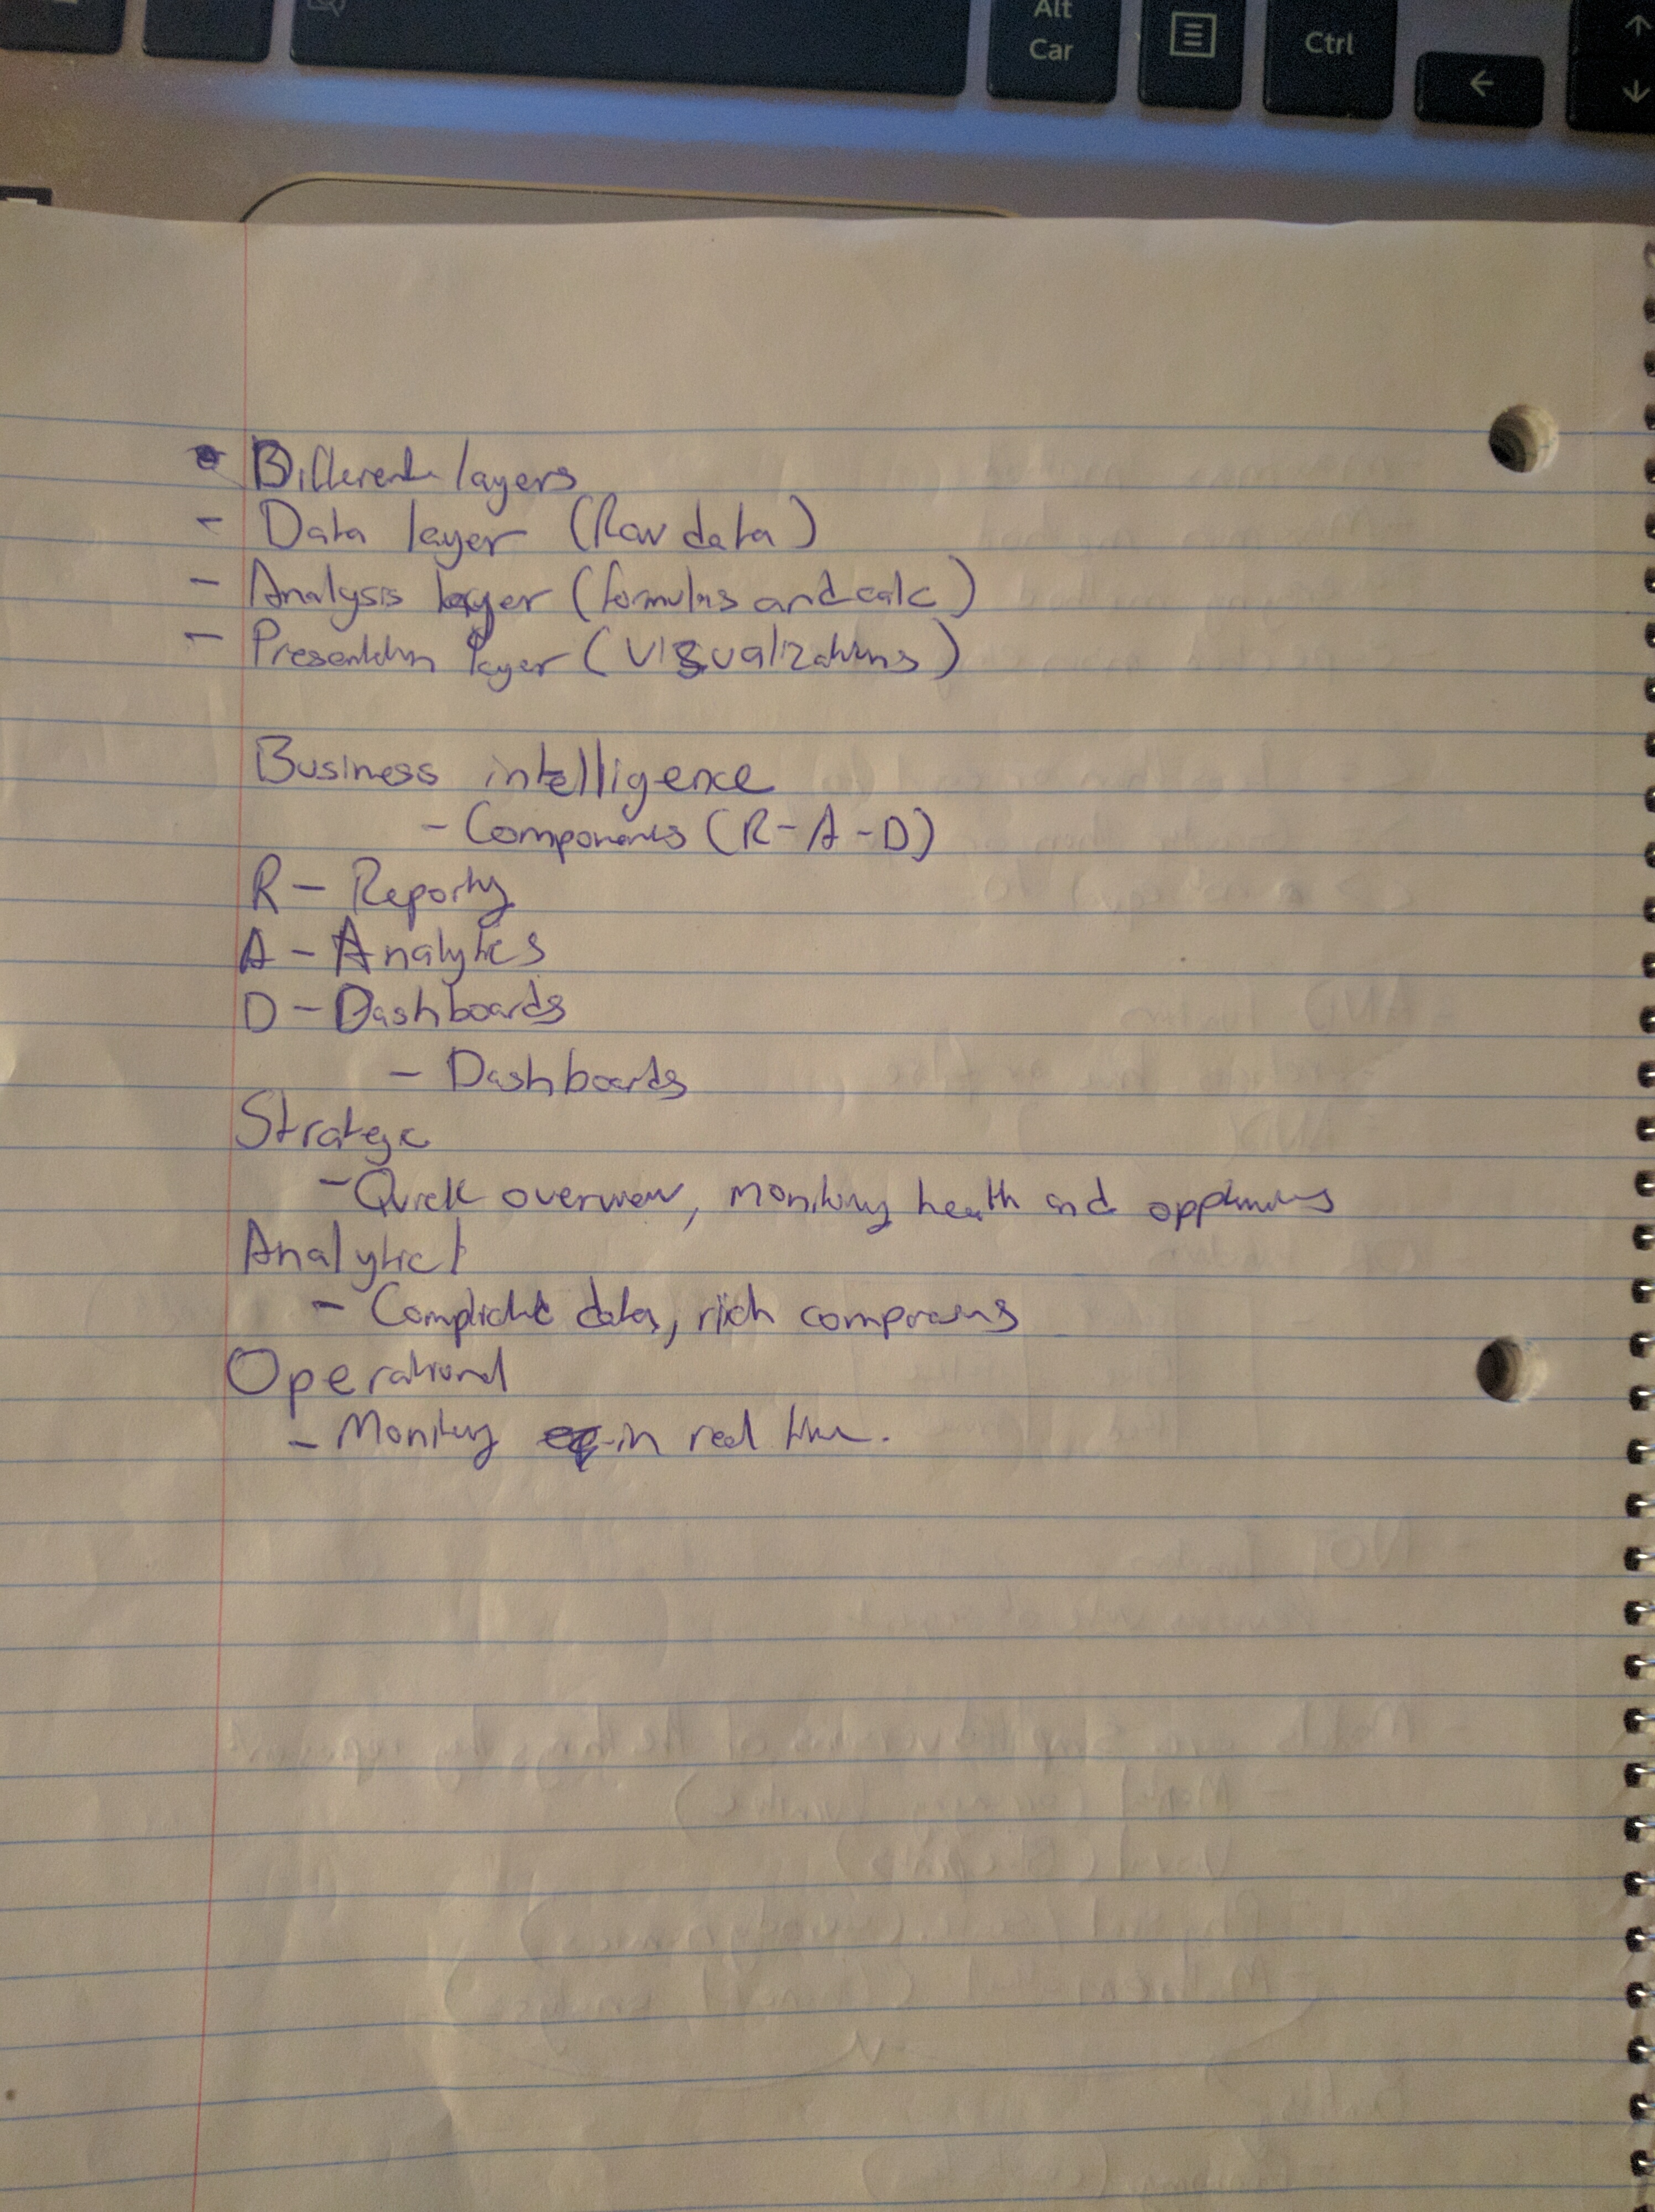 Alt
Car
Ctrl
• Different layers
- Data layer (Raw data)
- Analysis layer (formulas and calc)
- Presentation layer (Visualizations)
Business intelligence
- Components (R-A-D)
R - Reporting
A - Analytics
D - Dashboards
- Dashboards
Strategic
- Quick overview, monitoring health and
Analytical
- data, rich comparisons
Operational
- Monitoring in real time.